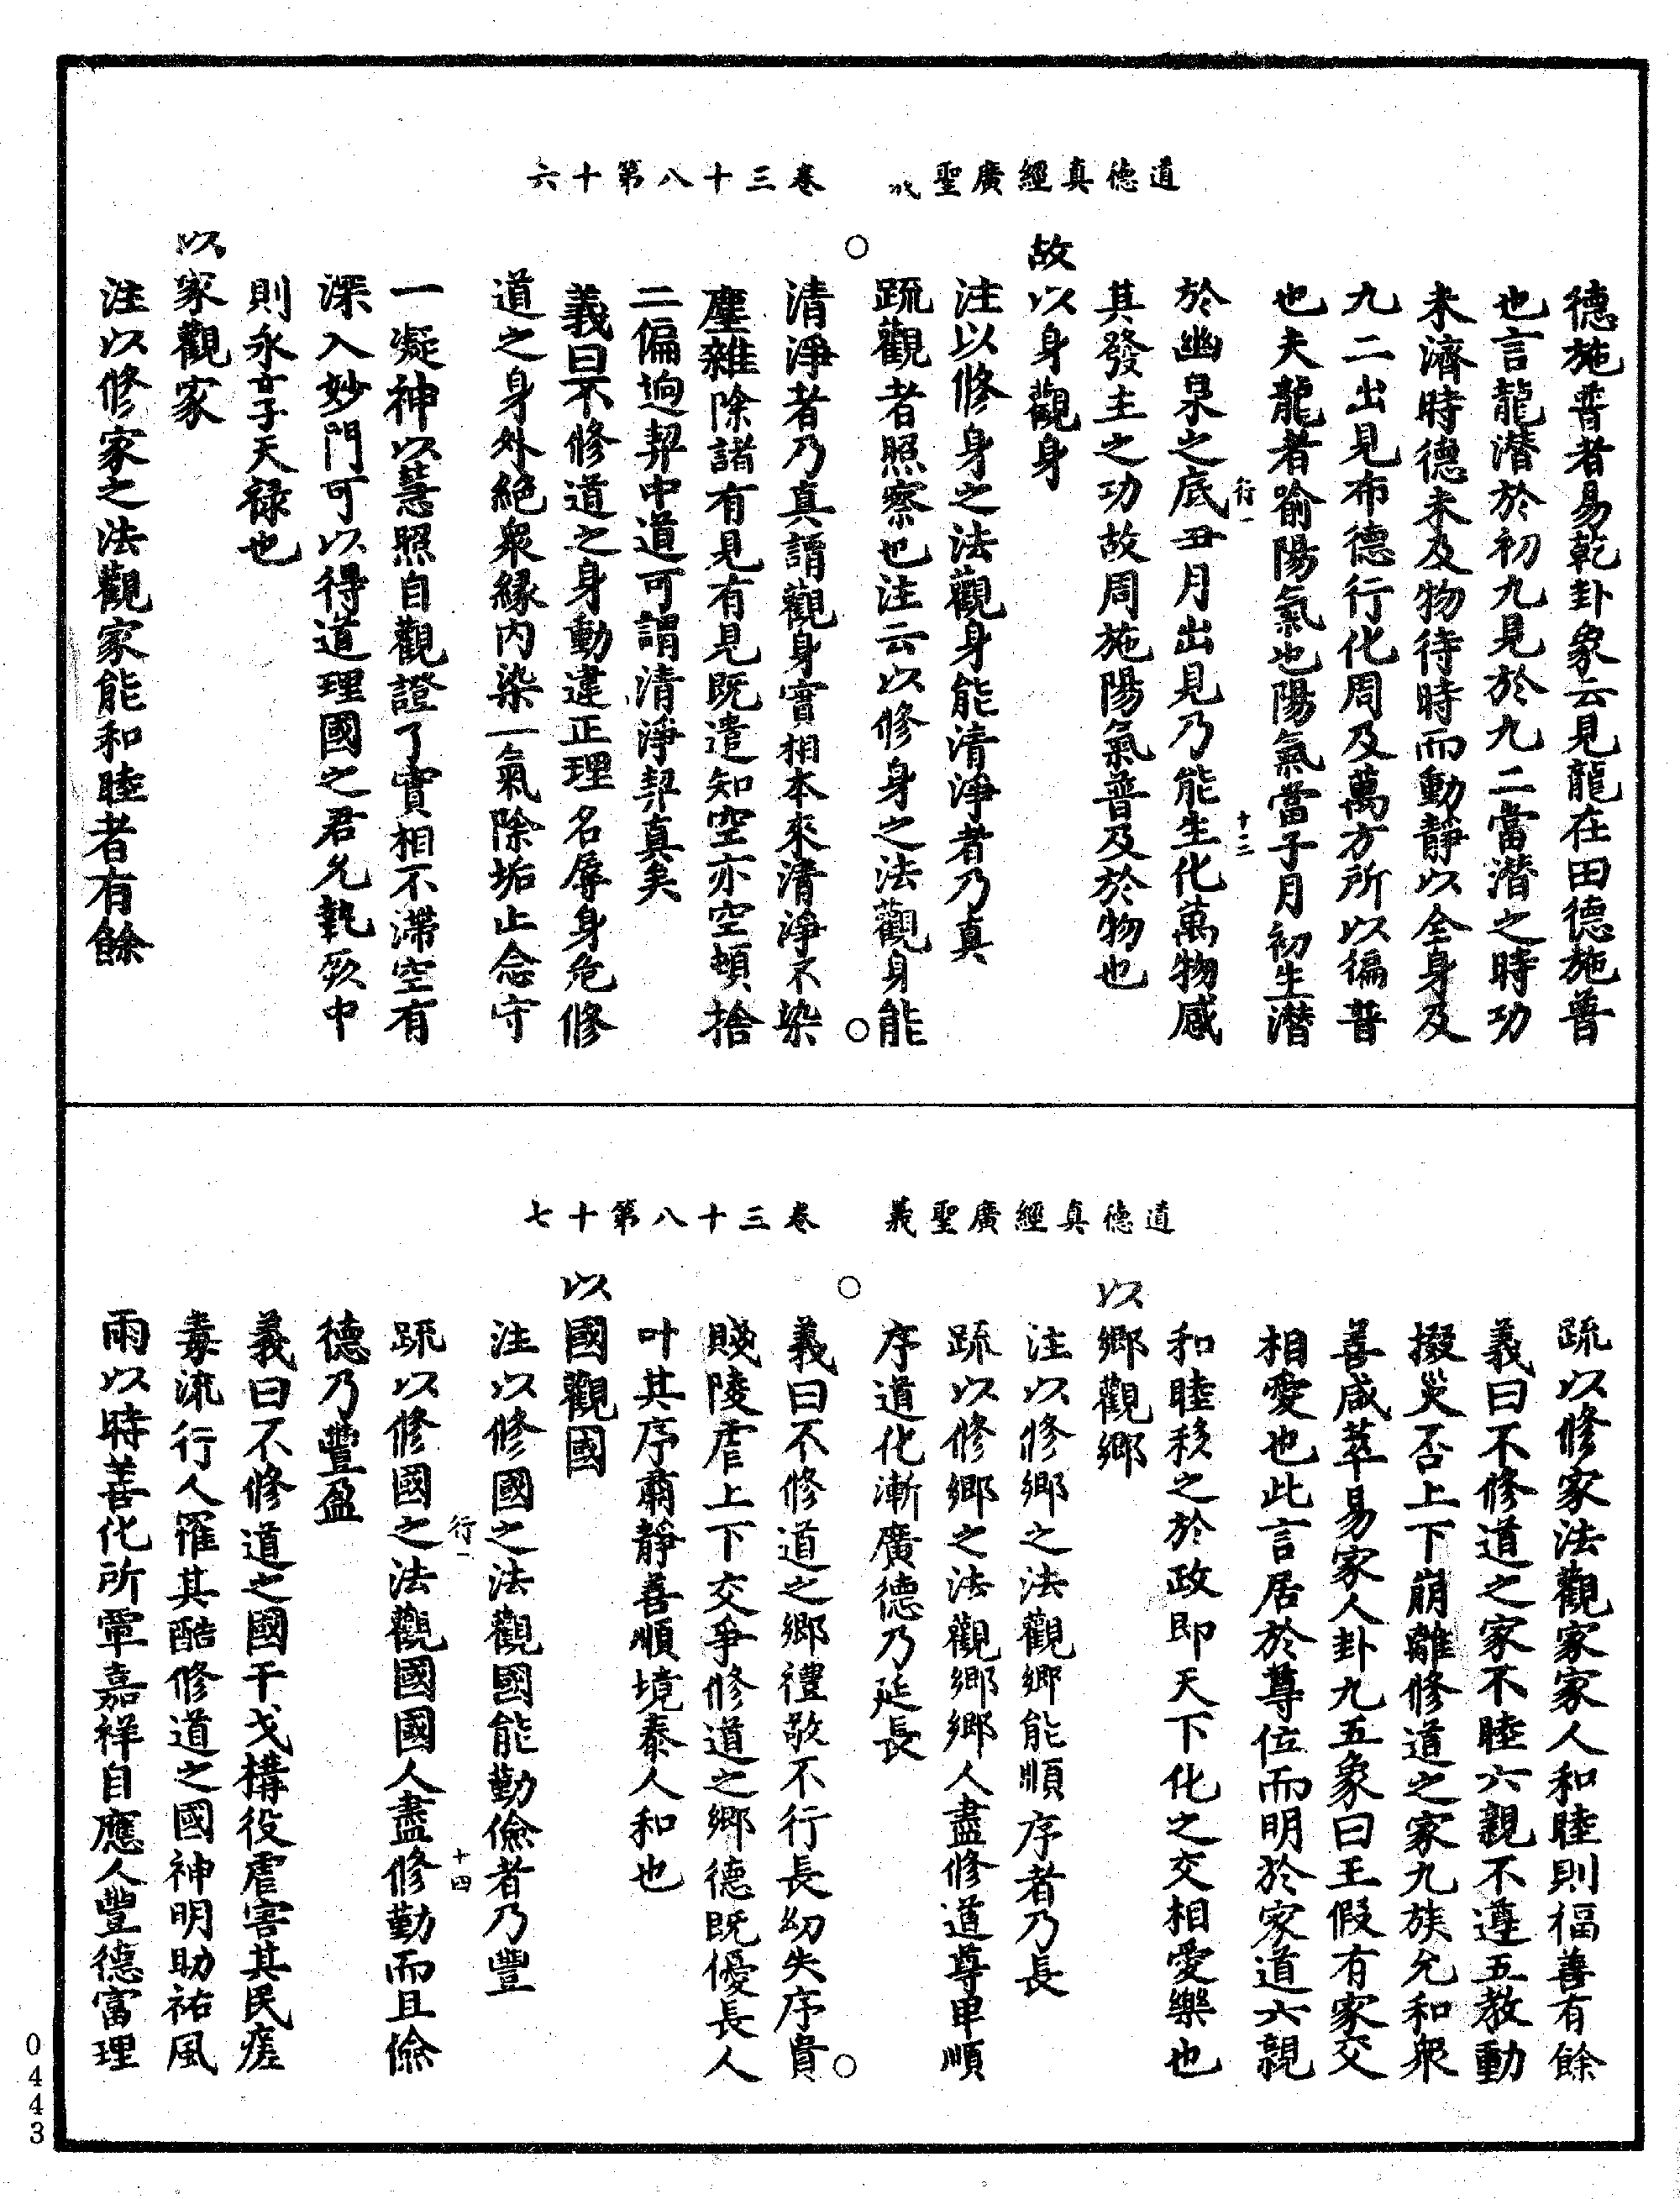 道德真經廣聖義　卷三十八第十六
德施普者易乾卦象云見龍在田德施普
也言龍潛於初九見於九二當潛之時功
未濟時德未及物待時而動靜以全身及
九二出見布德行化周及萬方所以徧普
也夫龍者喻陽氣也陽氣當子月初生潛
行一　十二
於幽泉之底丑月出見乃能生化萬物感
其發主之功故周施陽氣普及於物也
故以身觀身
注以修身之法觀身能清淨者乃真
疏觀者照察也注云以修身之法觀身能
清淨者乃真謂觀身實相本來清淨不染
塵雜除諸有見有見既遣知空亦空頓捨
二偏迥契中道可謂清淨契真矣
義曰不修道之身動違正理名辱身危修
道之身外絕衆緣內染一氣除垢止念守
一凝神以慧照自觀證了實相不滯空有
深入妙門可以得道理國之君允執厥中
則永享天祿也
以家觀家
注以修家之法觀家能和睦者有餘
道德真經廣聖義　卷三十八第十七
疏以修家法觀家家人和睦則福善有餘
義曰不修道之家不睦六親不遵五教動
掇災否上下崩離修道之家九族允和衆
善咸萃易家人卦九五象曰王假有家交
相愛也此言居於尊位而明於家道六親
和睦移之於政即天下化之交相愛樂也
以鄉觀鄉
注以修鄉之法觀鄉能順序者乃長
疏以修鄉之法觀鄉鄉人盡修道尊卑順
序道化漸廣德乃延長
義曰不修道之鄉禮敬不行長幼失序貴
賤陵虐上下交爭修道之鄉德既優長人
叶其序肅靜善順境泰人和也
以國觀國
注以修國之法觀國能勤儉者乃豐
行一　十四
疏以修國之法觀國國人盡修勤而且儉
德乃豐盈
義曰不修道之國干戈構役虐害其民瘥
毒流行人罹其酷修道之國神明助祐風
雨以時善化所覃嘉祥自應人豐德富理
0443